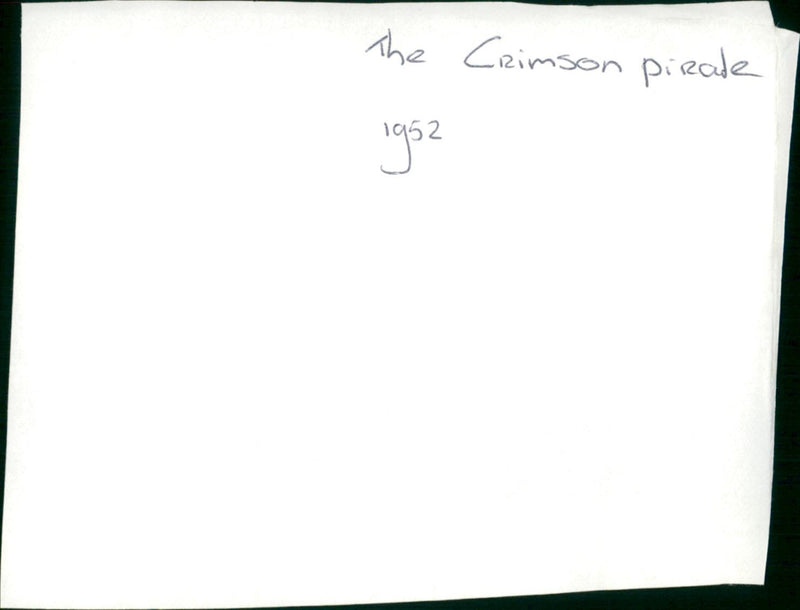 The Crimson pirate
1952